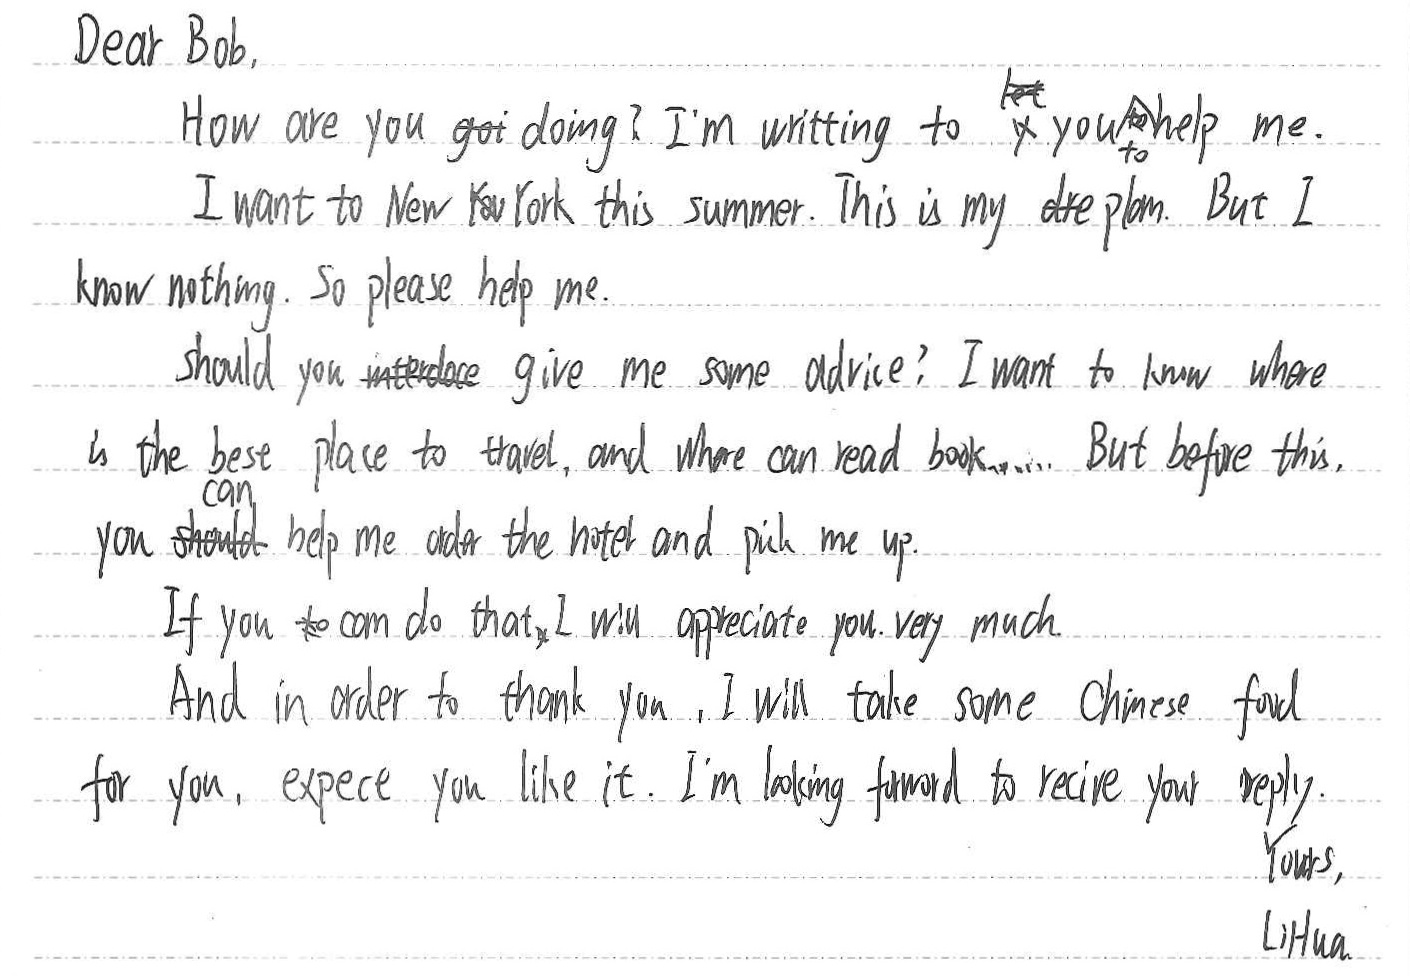 Dear Bob,
How are you doing? I'm writting to you to help me.
I want to New York this summer. This is my plan. But I
know nothing. So please help me.
Should you give me some advice? I want to know where
is the best place to travel, and where can read book...... But before this,
you can help me order the hotel and pick me up.
If you can do that, I will appreciate you very much.
And in order to thank you, I will take some Chinese food
for you, expect you like it. I'm looking forword to recive your reply.
Yours,
LiHua